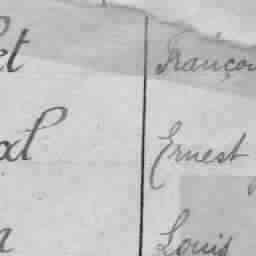 et Françoi
al Ernest
Louis